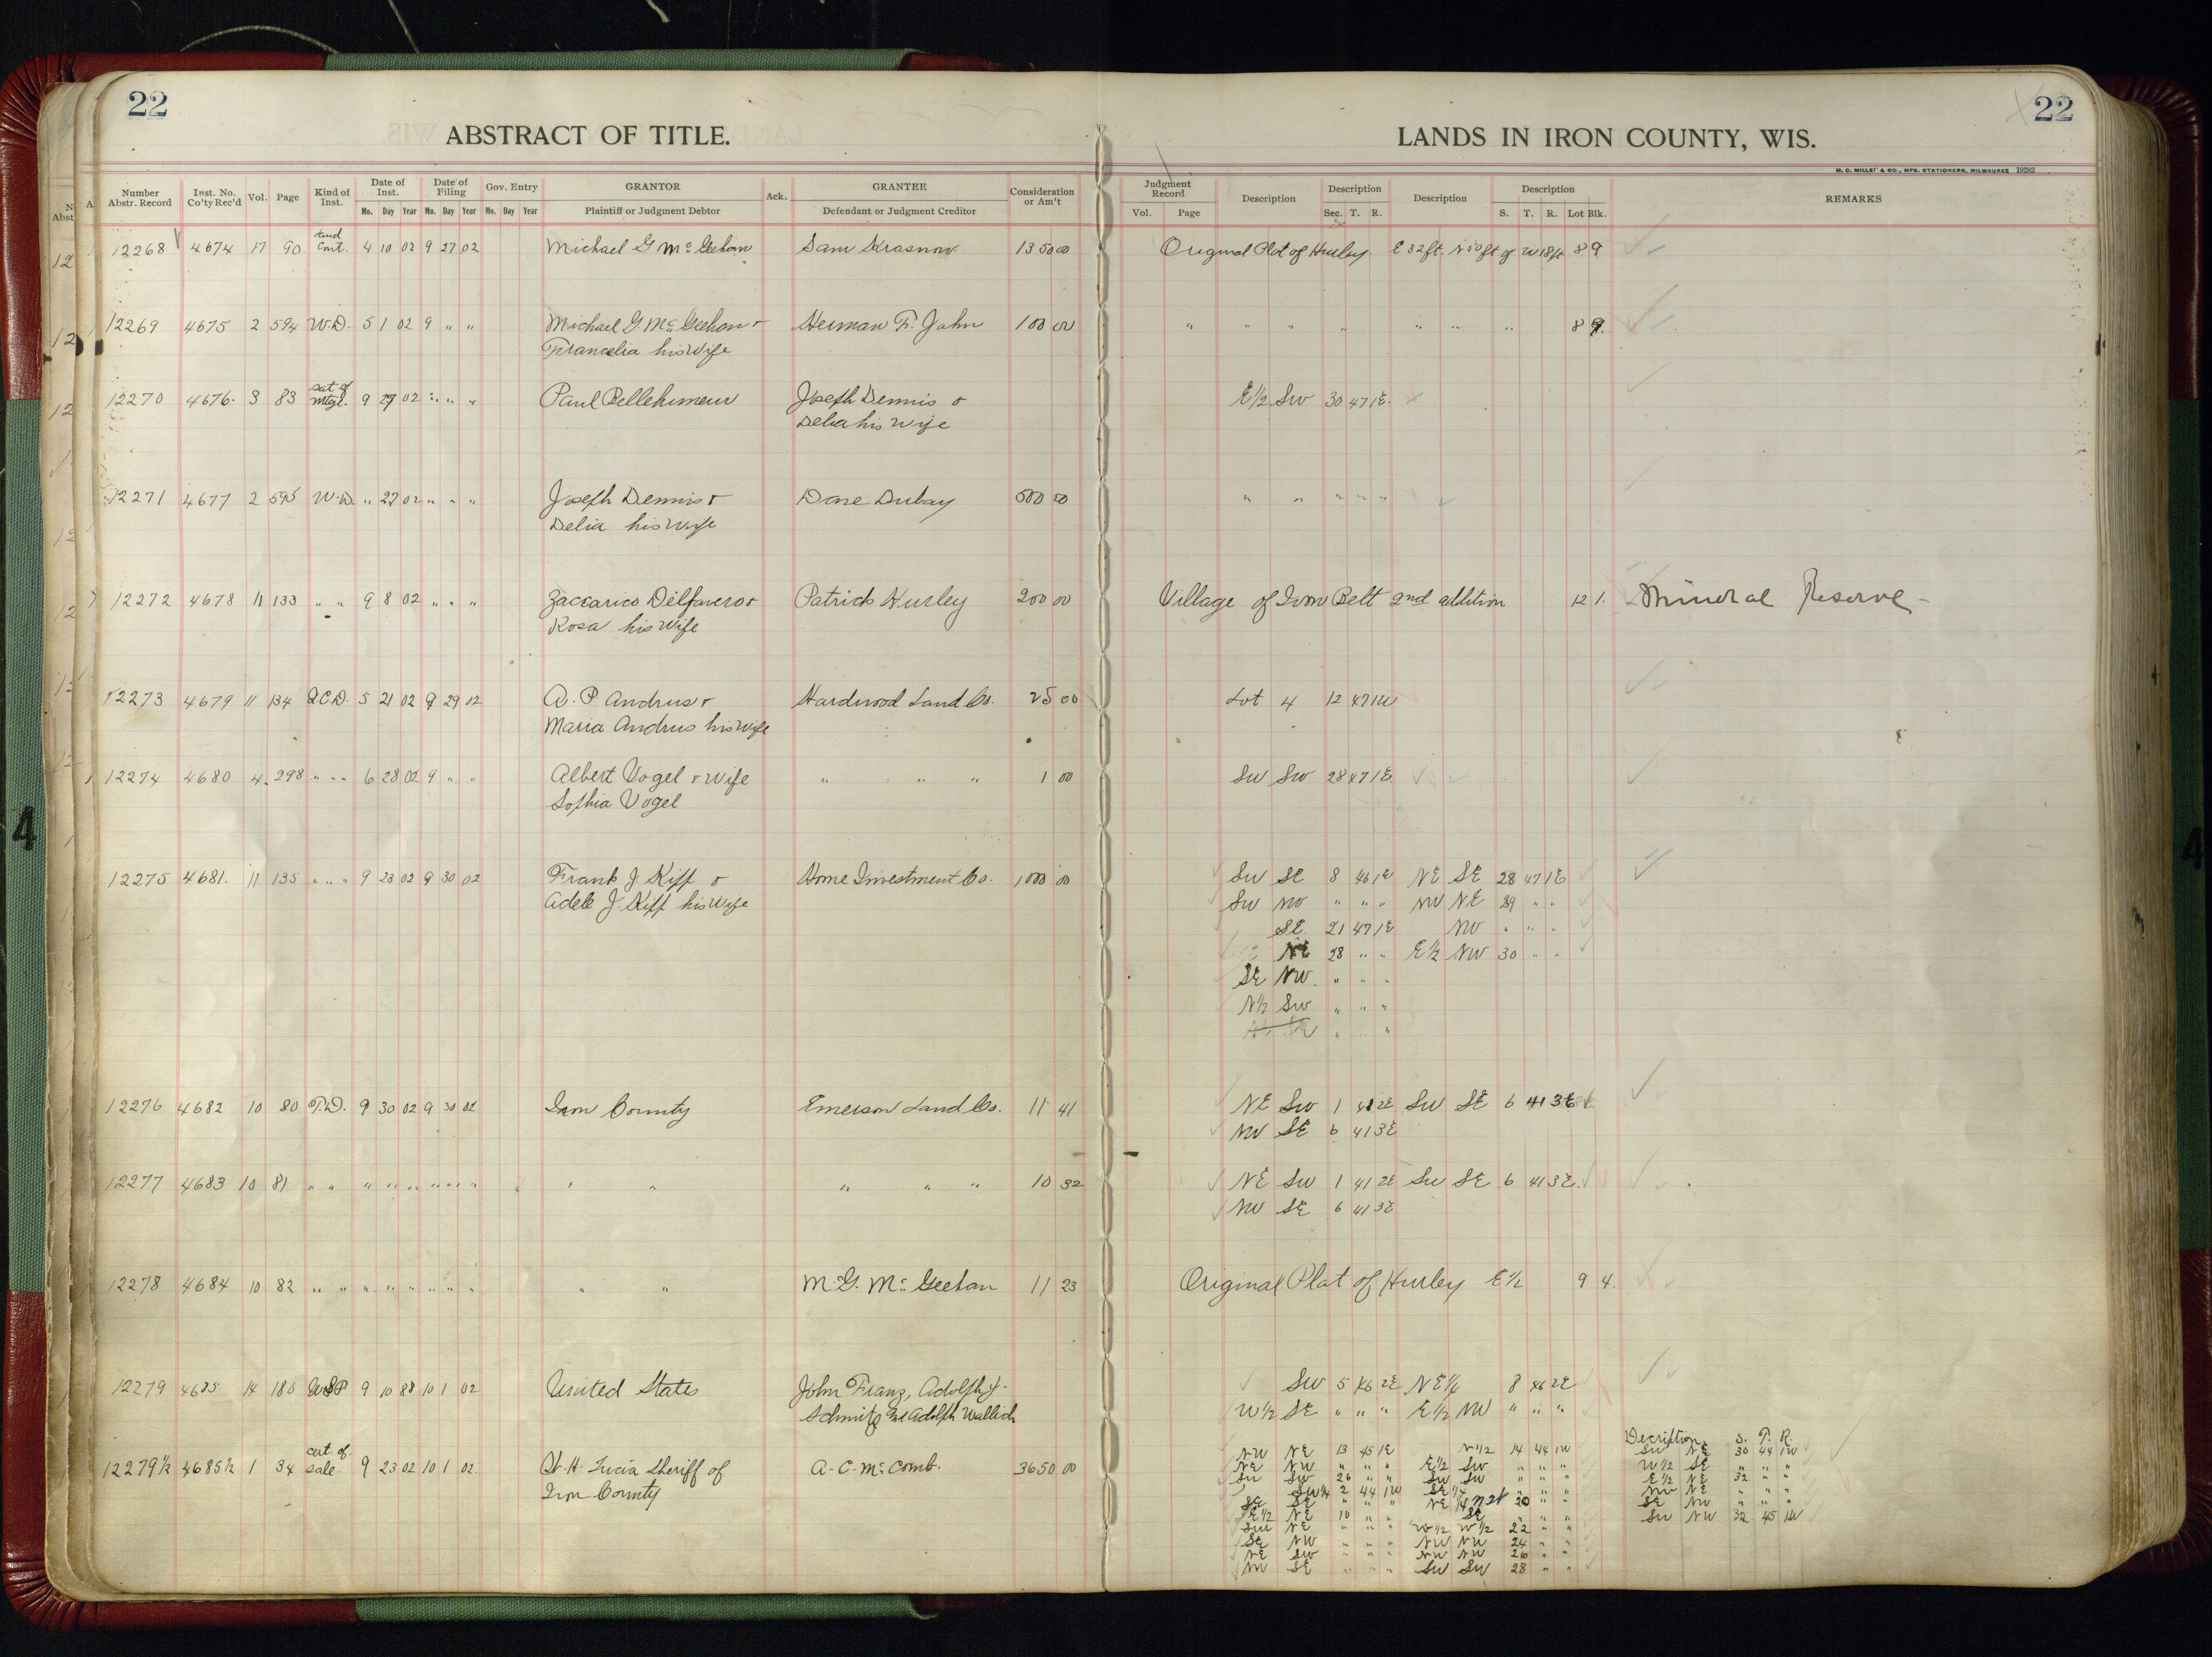 22
ABSTRACT OF TITLE.
Number Abstr. Record Inst. No. Co'ty Rec'd Vol. Page Kind of Inst. Date of Inst. Mo. Day Year Date of Filing Mo. Day Year Gov. Entry Mo. Day Year GRANTOR Plaintiff or Judgment Debtor Ack. GRANTEE Defendant or Judgment Creditor Consideration or Am't
22
LANDS IN IRON COUNTY, WIS.
H. C. MILLER & CO., MFG. STATIONERS, MILWAUKEE 19282
Judgment Record Vol. Page Description Description Sec. T. R. Description Description S. T. R. Lot Blk. REMARKS
12268 4674 17 90 Land Cont. 4 10 02 9 27 02 Michael G McGeehan Sam Krasnow 1350 00 Original Plat of Hurley E 32 ft. N 50 ft of W 18 ft 8 9
12269 4675 2 594 W.D. 5 1 02 9 " " Michael G. McGeehan & Herman F. John 100 00 " " " " " " " 8 9.
Francelia his Wife
12270 4676 3 83 Sat of Mtge. 9 27 02 " " " Paul Bellehumeur Joseph Dennis & E½ SW 30 47 1E.
Delia his Wife
12271 4677 2 595 W.D. " 27 02 " " " Joseph Dennis & Dave Dubay 500 00 " " " " "
Delia his Wife
12272 4678 11 133 " " 9 8 02 " " " Zaccarico Delfavero & Patrick Hurley 200 00 Village of Iron Belt 2nd addition 12 1. Mineral Reserve
Rosa his Wife
12273 4679 11 134 Q.C.D. 5 21 02 9 29 02 A. P Andrus & Hardwood Land Co. 25 00 Lot 4 12 47 1W
Maria Andrus his Wife
12274 4680 4 298 " " " 6 28 02 9 " " Albert Vogel & Wife " " " 1 00 SW SW 28 47 1E
Sophia Vogel
12275 4681. 11 135 " " " 9 23 02 9 30 02 Frank J Kipp & Home Investment Co. 1000 00 SW SE 8 46 1E NE SE 28 47 1E
Adele J. Kipp his Wife SW NW " " " NW NE 29 " "
SE 21 47 1E NW " " "
NE 28 " " E½ NW 30 " "
SE NW " " "
N½ SW " " "
12276 4682 10 80 T.D. 9 30 02 9 30 02 Iron County Emerson Land Co. 11 41 NE SW 1 41 2E SW SE 6 41 3E
NW SE 6 41 3E
12277 4683 10 81 " " " " " " " " " " " " " 10 32 NE SW 1 41 2E SW SE 6 41 3E.
NW SE 6 41 3E
12278 4684 10 82 " " " " " " " " " " M.G. McGeehan 11 23 Original Plat of Hurley E½ 9 4.
12279 4685 14 180 USP 9 10 88 10 1 02 United States John Franz, Adolph J. SW 5 46 2E NE¼ 8 46 2E
Schmitz and Adolph Wallich W½ SE " " " E½ NW " " "
12279½ 4685½ 1 34 cert. of sale. 9 23 02 10 1 02. Sheriff of A. C. McComb. 3650 00
Iron County
NW NE 13 45 1E N½ 14 44 1W
NE NW " " " E½ SW " " "
SW SW 26 " " SW SW " " "
SW¼ 2 44 1W SE¼ " " "
SE SE " " " NE 20 " "
E½ NE 10 " " SE " " "
SW NE " " " W½ W½ 22 " "
SE NW " " " NW NW 24 " "
NE SW " " " NW NW 26 " "
NW SE " " " SW SW 28 " "
Decription S. T. R.
SW NE 30 44 1W
W½ SE " " "
E½ NE 32 " "
NW NE " " "
SE NW " " "
SW NW 32 45 1W
4
4